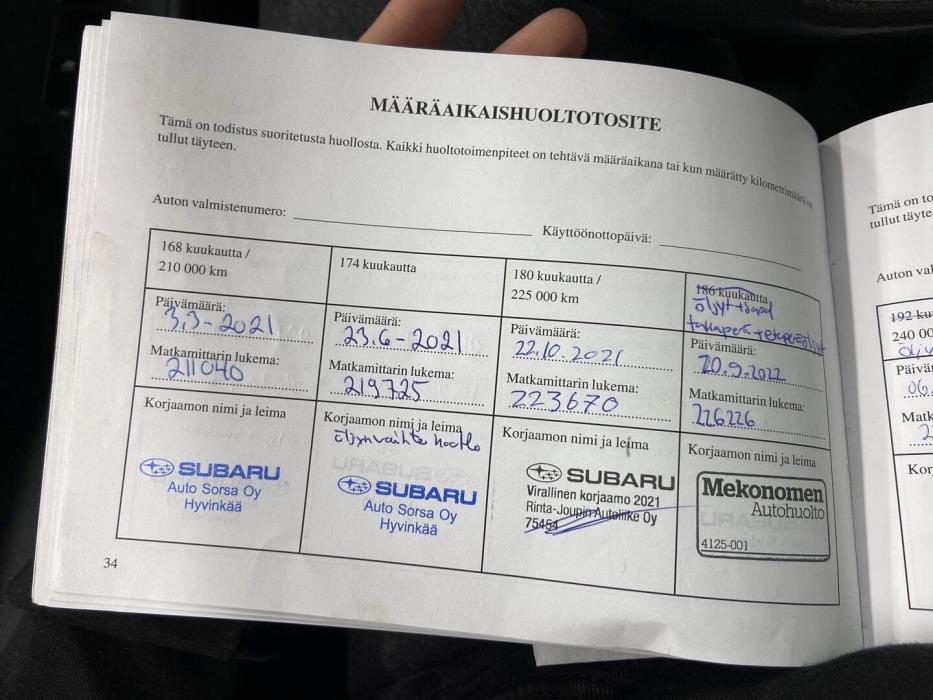 MÄÄRÄAIKAISHUOLTOTOSITE
Tämä on todistus suoritetusta huollosta. Kaikki huoltotoimenpiteet on tehtävä määräaikana tai kun määrätty kilometrimäärä on
tullut täyteen.
Auton valmistenumero:
Käyttöönottopäivä:
168 kuukautta /
210 000 km
Päivämäärä:
3.3-2021
Matkamittarin lukema:
211040
Korjaamon nimi ja leima
SUBARU
Auto Sorsa Oy
Hyvinkää
174 kuukautta
Päivämäärä:
23.6-2021
Matkamittarin lukema:
219725
Korjaamon nimi ja leima
öljynvaihto huolto
SUBARU
Auto Sorsa Oy
Hyvinkää
180 kuukautta /
225 000 km
Päivämäärä:
22.10.2021
Matkamittarin lukema:
223670
Korjaamon nimi ja leima
SUBARU
Virallinen korjaamo 2021
Rinta-Joupin Autoliike Oy
75454
186 kuukautta
öljyt+
takaperä+etuperäöljyt
Päivämäärä:
20.9.2022
Matkamittarin lukema:
226226
Korjaamon nimi ja leima
Mekonomen
Autohuolto
4125-001
34
Tämä on to
tullut täyte
Auton val
192 ku
240 00
Päivä
06.
Matk
2
Kor